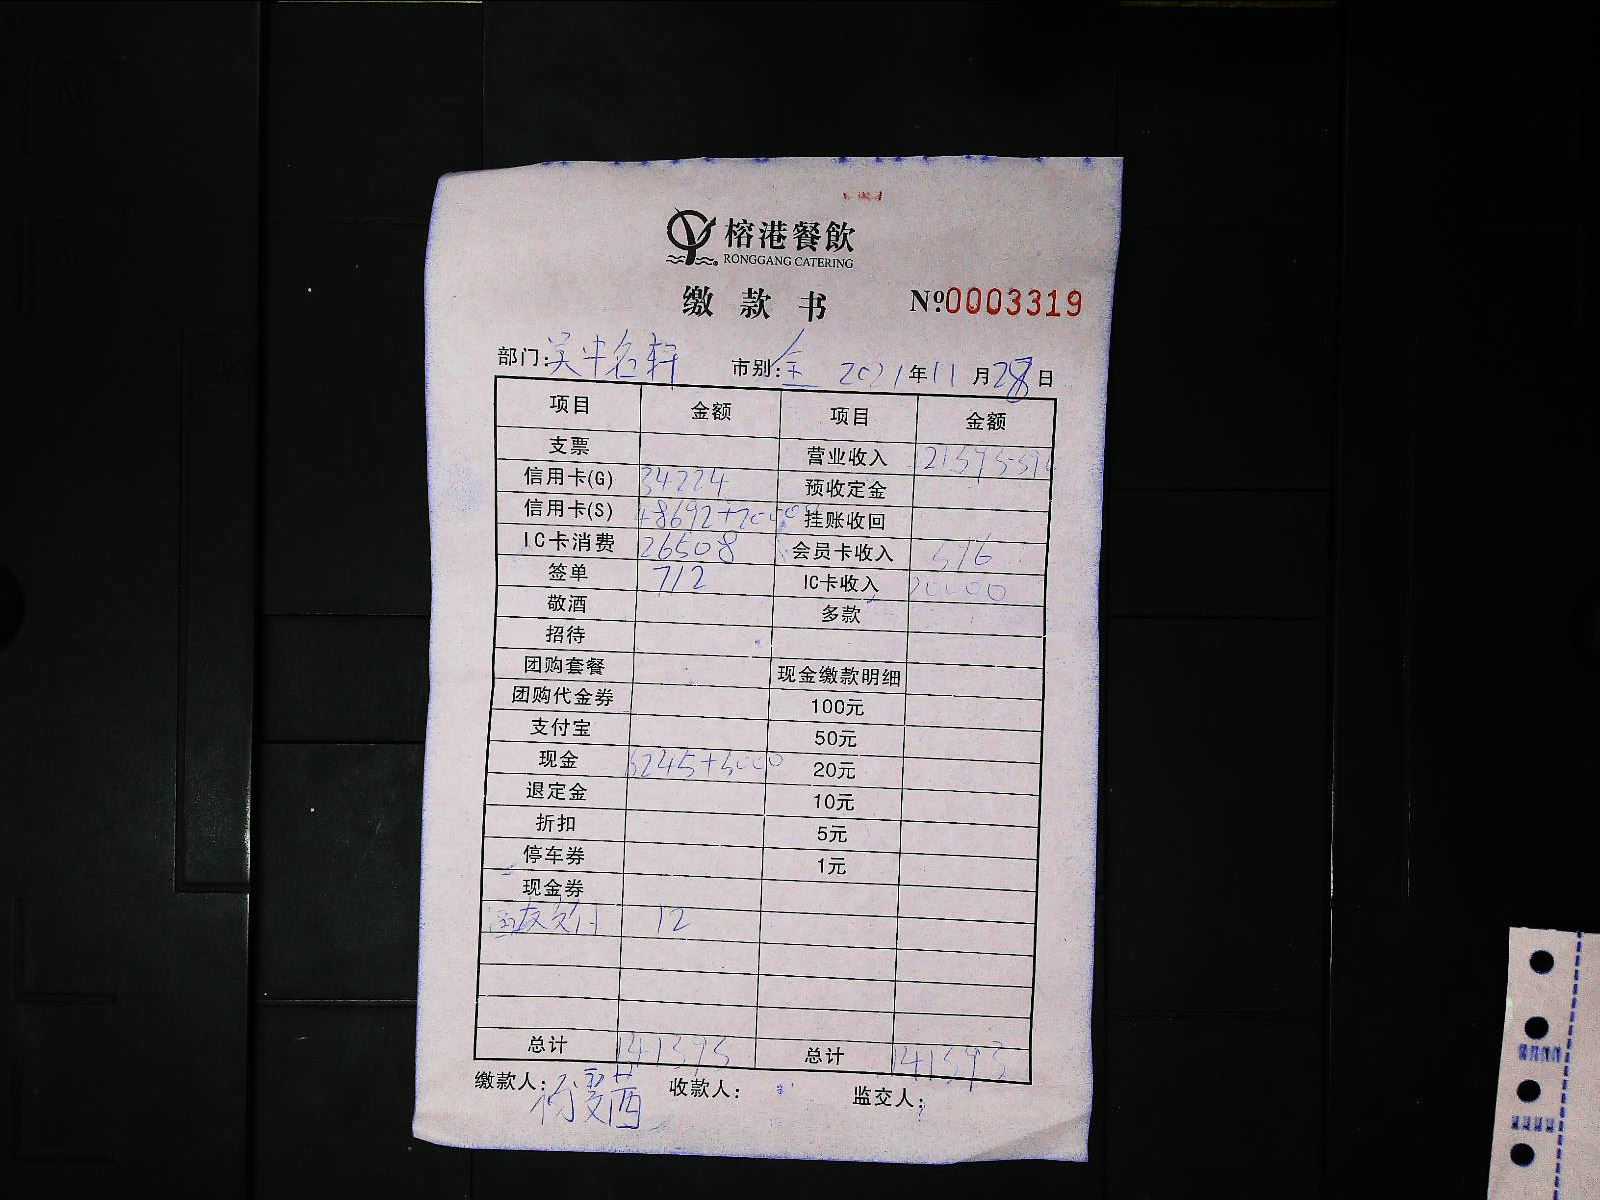 榕港餐飲
RONGGANG CATERING
缴款书 Nº.0003319
部门: 市别: 全 2021年11月28日
项目 金额 项目 金额
支票 营业收入
信用卡(G) 34224 预收定金
信用卡(S) 挂账收回
IC卡消费 26508 会员卡收入 596
签单 712 IC卡收入 20000
敬酒 多款
招待
团购套餐 现金缴款明细
团购代金券 100元
支付宝 50元
现金 20元
退定金 10元
折扣 5元
停车券 1元
现金券
12
总计 141393 总计 141393
缴款人: 收款人: 监交人: